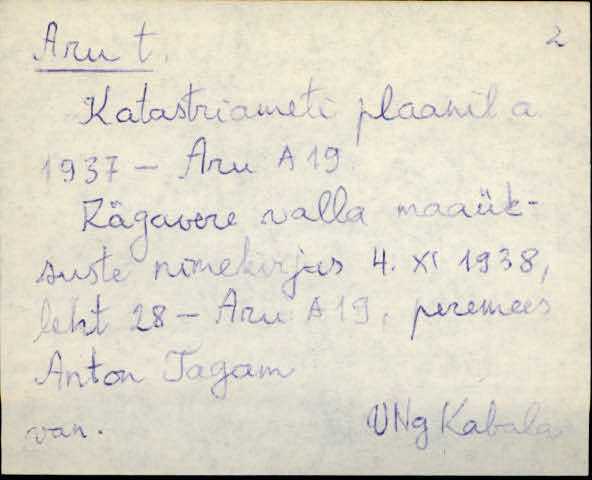 Aru t. 2
Katastriameti plaanil a
1937 – Aru A 19
Rägavere valla maaük-
suste nimekirjas 4. XI 1938,
leht 28 – Aru A 19, peremees
Anton Tagam
van. VNg Kabala